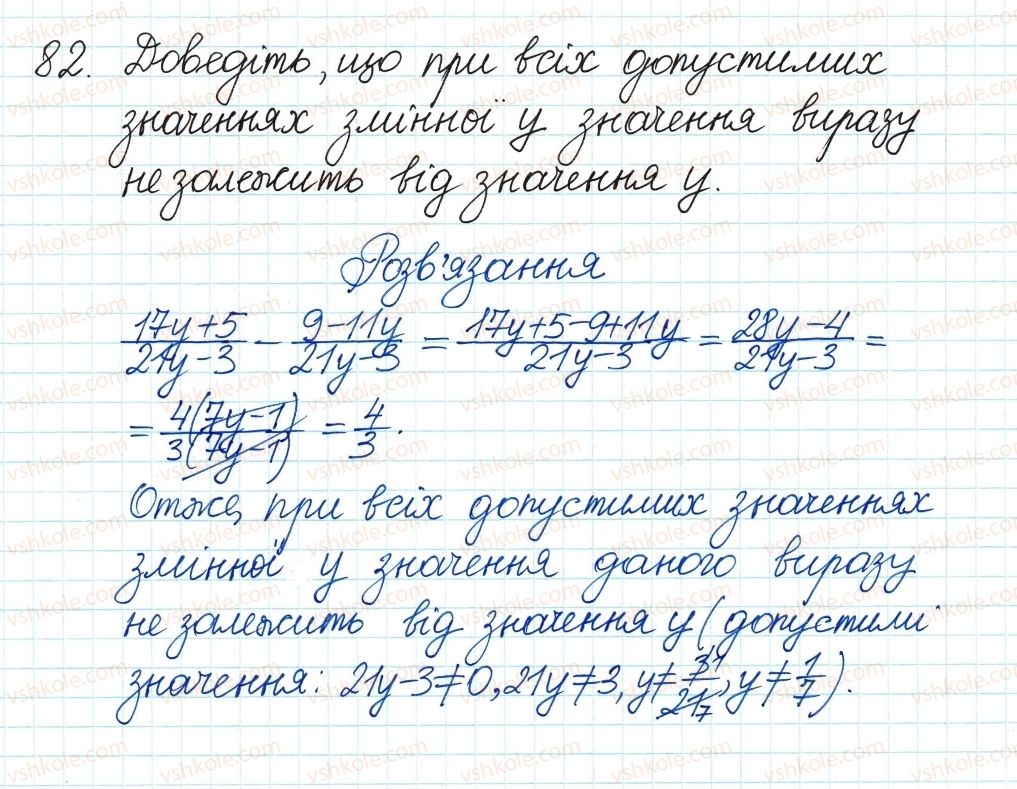 82. Доведіть, що при всіх допустимих
значеннях змінної у значення виразу
не залежить від значення у.
Розв'язання
(17y+5)/(21y-3) - (9-11y)/(21y-3) = (17y+5-9+11y)/(21y-3) = (28y-4)/(21y-3) =
= 4(7y-1)/3(7y-1) = 4/3.
Отже, при всіх допустимих значеннях
змінної у значення даного виразу
не залежить від значення у (допустимі
значення: 21y-3≠0, 21y≠3, y≠3/21, y≠1/7).